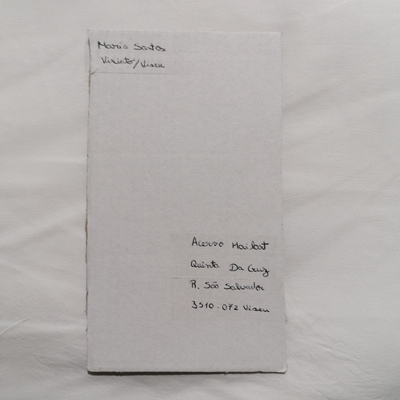 Maria Santos
Viriato/Viseu
Acervo Mailart
Quinta Da Cruz
R. São Salvador
3510-072 Viseu